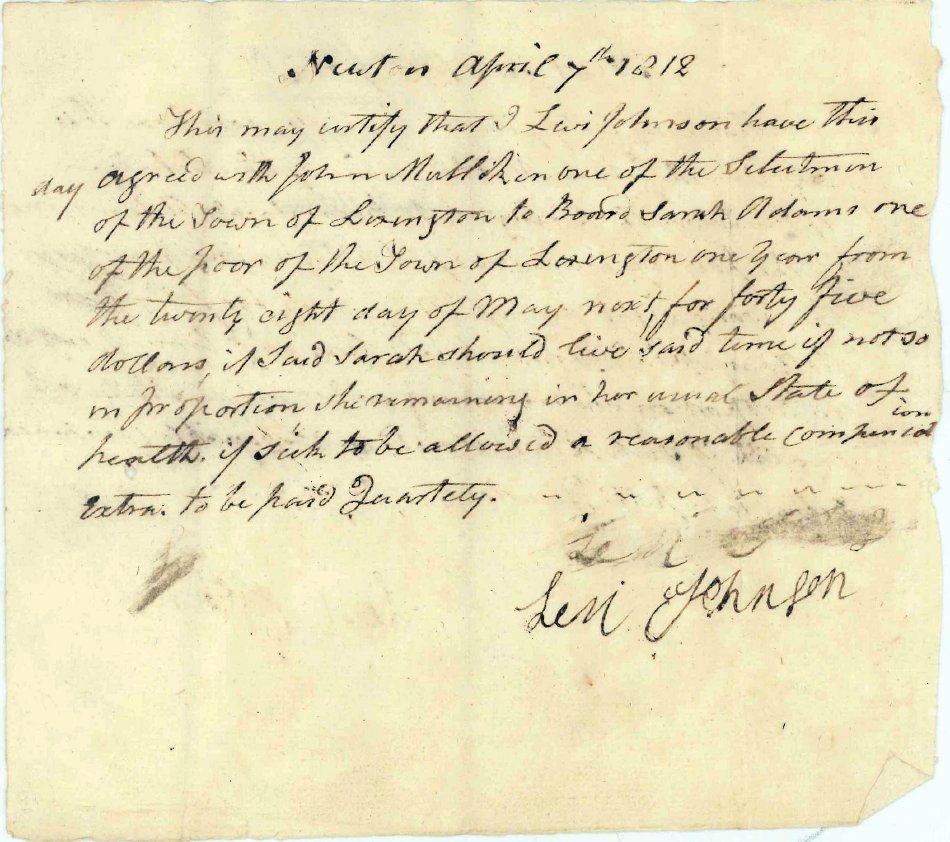 Newton April 7th 1812
This may certify that I Levi Johnson have this
day agreed with John Mulliken one of the Selectmen
of the Town of Lexington to Board Sarah Adams one
of the poor of the Town of Lexington one Year from
the twenty eight day of May next, for forty five
dollars, if Said Sarah should live said time if not so
in proportion she remaining in her usual State of
health. if sick to be allowed a reasonable compensation
Extra. to be paid Quartely.
Levi
Levi Johnson